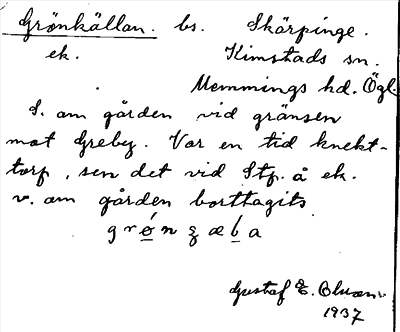 Grönkällan. bs. Skärpinge.
ek. Kimstads sn.
Memmings hd. Ögl.
S. om gården vid gränsen
mot Greby. Var en tid knekt-
torp, sen det vid Stp. å ek.
v. om gården borttagits
Gustaf E.
1937